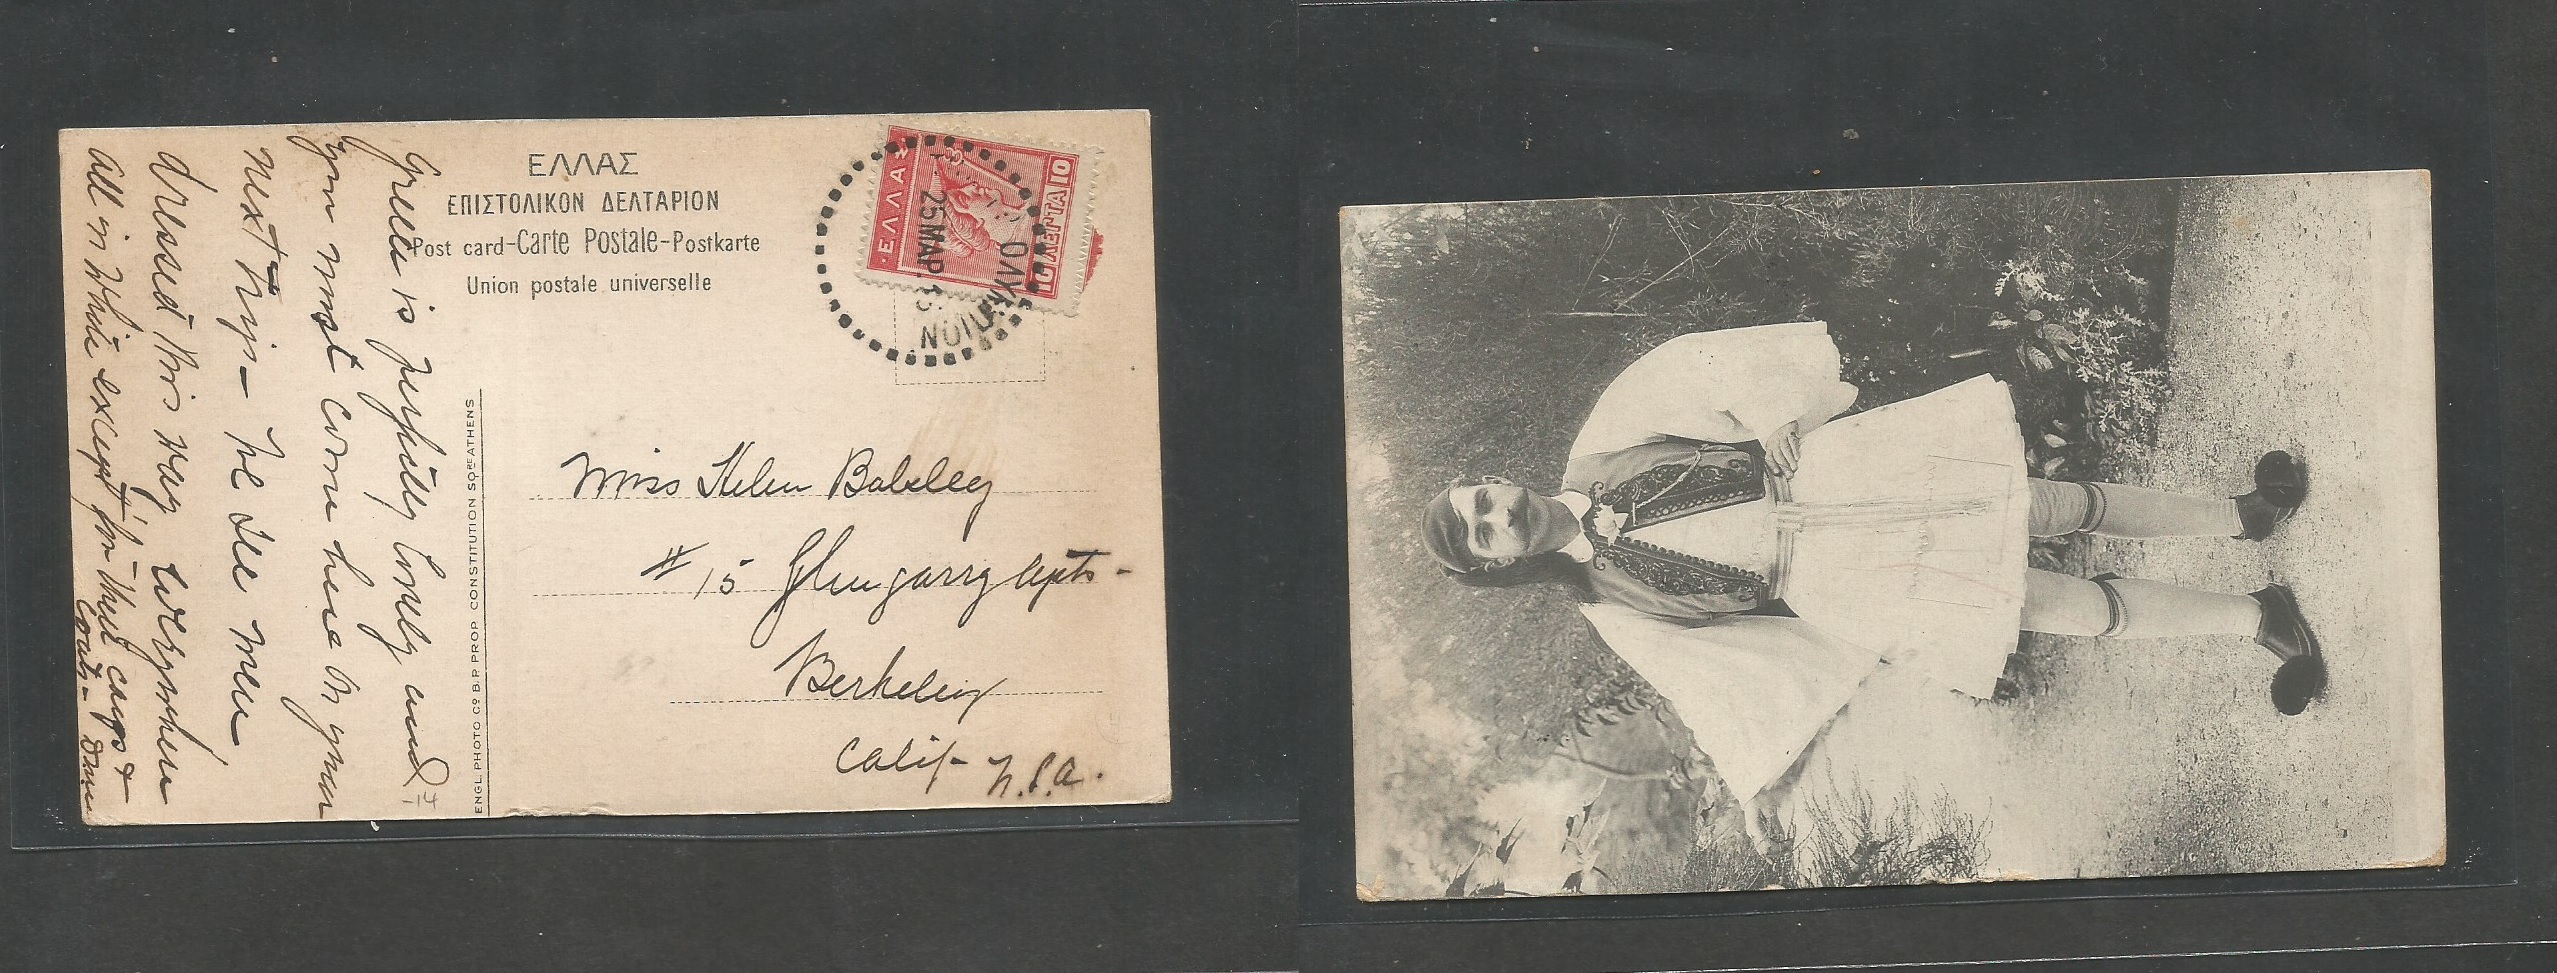 ΕΛΛΑΣ
ΕΠΙΣΤΟΛΙΚΟΝ ΔΕΛΤΑΡΙΟΝ
Post card-Carte Postale-Postkarte
Union postale universelle
ΕΛΛΑΣ
10 ΛΕΠΤΑ 10
25 ΜΑΡ
Greece is perfectly lovely and
you must come here on your
next trip – We see men
dressed this way everywhere
all in white except for their caps &
coats –
-14
ENGL. PHOTO Co B.P. PROP. CONSTITUTION SQRE ATHENS
Miss Helen Babsley
# 15 Glengarry Apts-
Berkeley
Calif- U.S.A.